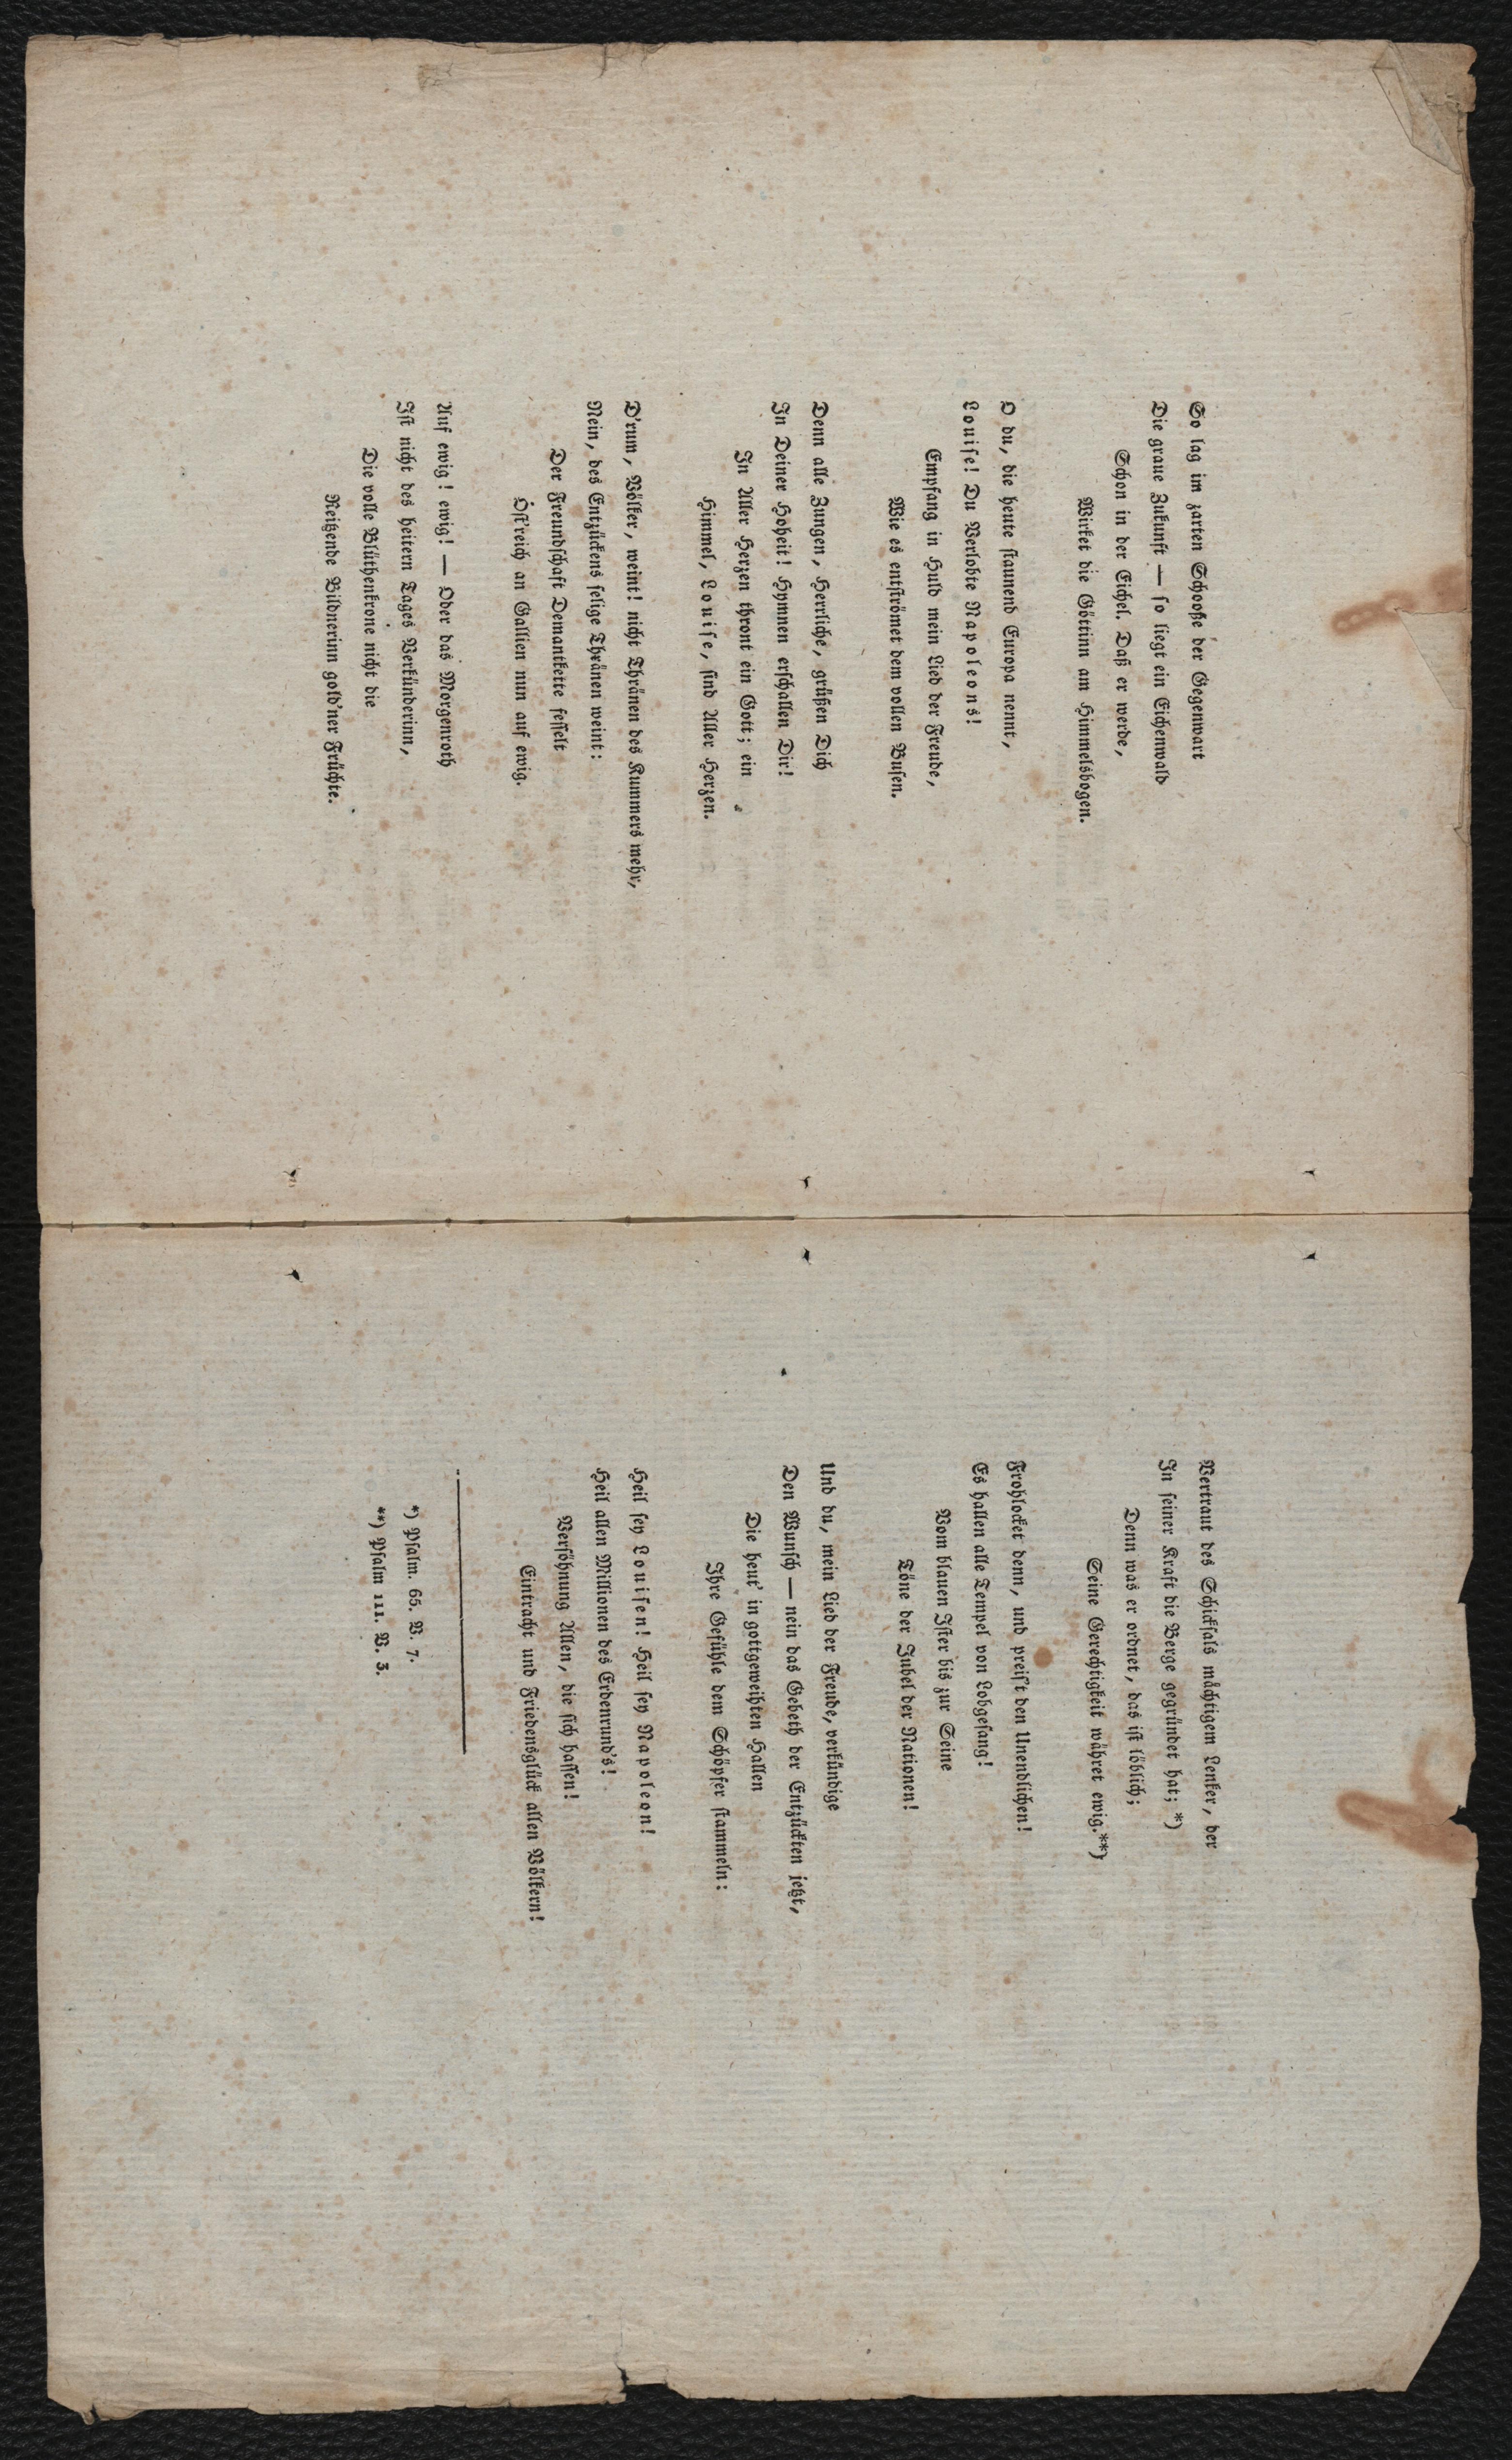 So lag im zarten Schooße der Gegenwart
Die graue Zukunft — so liegt ein Eichenwald
Schon in der Eichel. Daß er werde,
Wirket die Göttinn am Himmelsbogen.
O du, die heute staunend Europa nennt,
Louise! Du Verlobte Napoleons!
Empfang in Huld mein Lied der Freude,
Wie es entströmet dem vollen Busen.
Denn alle Zungen, Herrliche, grüßen Dich
In Deiner Hoheit! Hymnen erschallen Dir!
In Aller Herzen thront ein Gott; ein
Himmel, Louise, sind Aller Herzen.
D'rum, Völker, weint! nicht Thränen des Kummers mehr,
Nein, des Entzückens selige Thränen weint:
Der Freundschaft Demantkette fesselt
Öst'reich an Gallien nun auf ewig.
Auf ewig! ewig! — Oder das Morgenroth
Ist nicht des heitern Tages Verkünderinn,
Die volle Blüthenkrone nicht die
Reitzende Bildnerinn gold'ner Früchte.
Vertraut des Schicksals mächtigem Lenker, der
In seiner Kraft die Berge gegründet hat; *)
Denn was er ordnet, das ist löblich;
Seine Gerechtigkeit währet ewig.**)
Frohlocket denn, und preis't den Unendlichen!
Es hallen alle Tempel von Lobgesang!
Vom blauen Ister bis zur Seine
Töne der Jubel der Nationen!
Und du, mein Lied der Freude, verkündige
Den Wunsch — nein das Gebeth der Entzückten jetzt,
Die heut' in gottgeweihten Hallen
Ihre Gefühle dem Schöpfer stammeln:
Heil sey Louisen! Heil sey Napoleon!
Heil allen Millionen des Erdenrund's!
Versöhnung Allen, die sich hassen!
Eintracht und Friedensglück allen Völkern!
*) Psalm. 65. V. 7.
**) Psalm 111. V. 3.